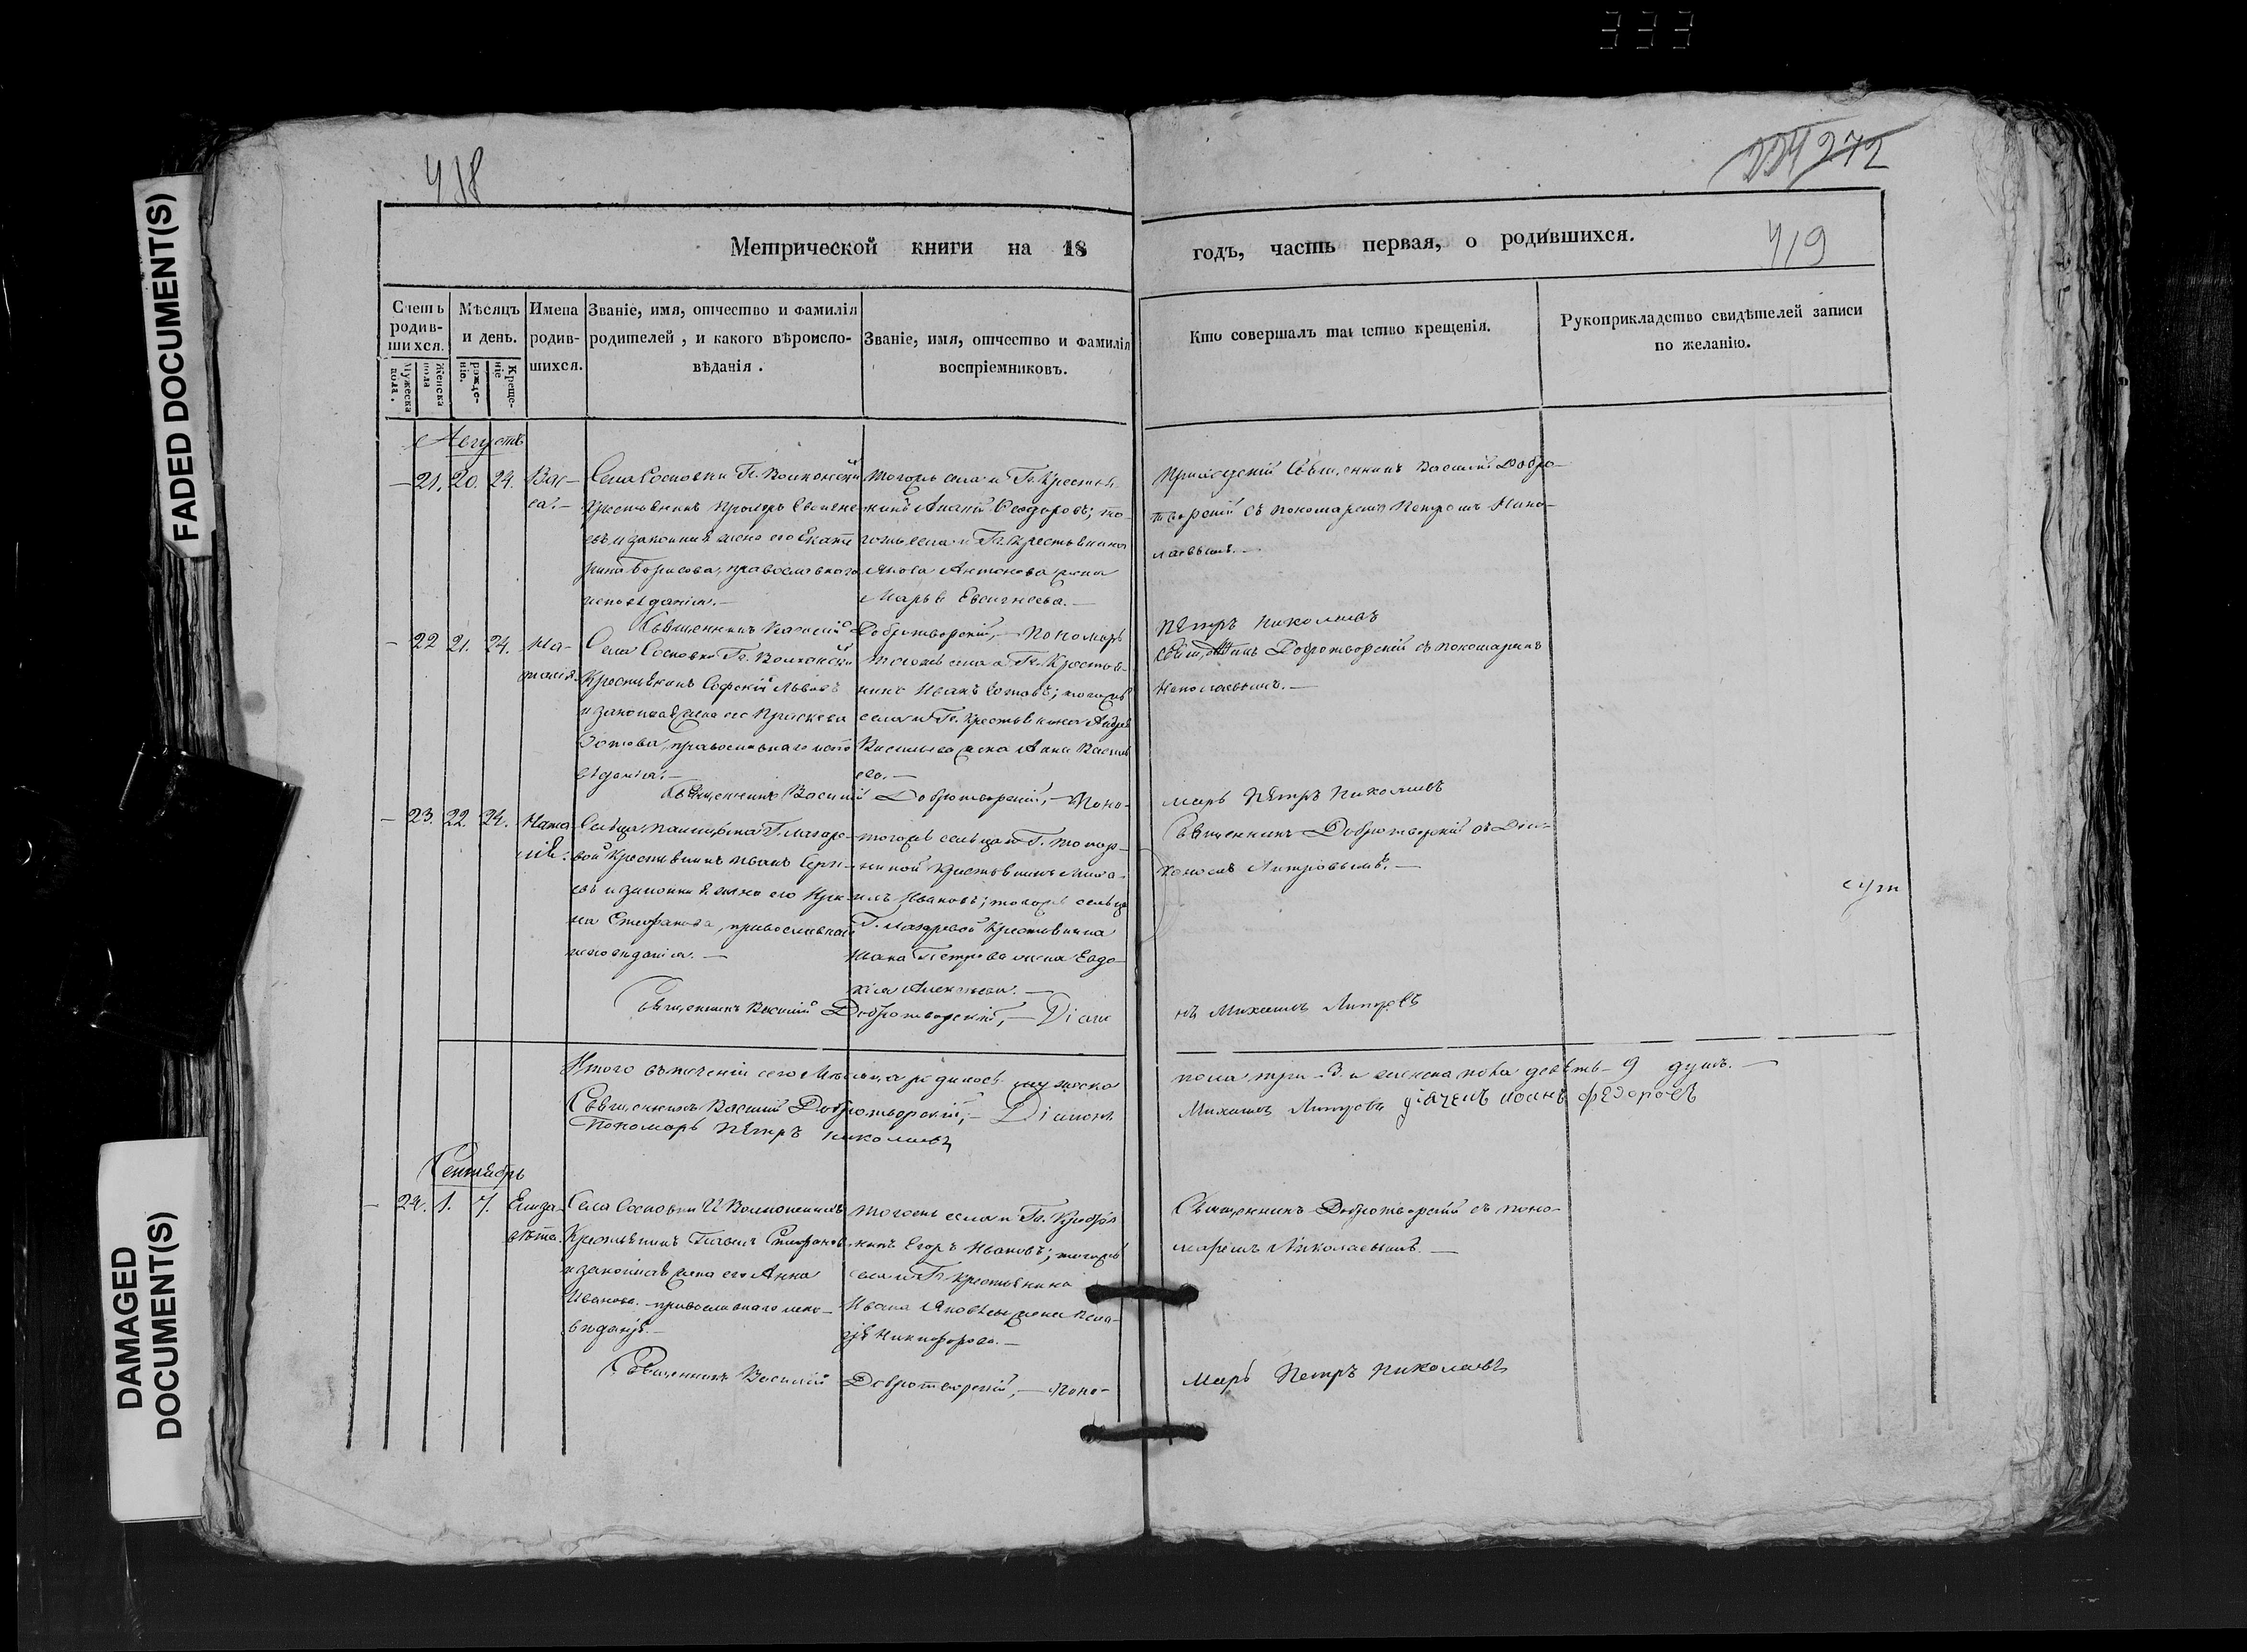 333
FADED DOCUMENT(S)
DAMAGED DOCUMENT(S)
418
272
419
Метрической книги на 18
годъ, часть первая, о родившихся.
Счетъ родив-шихся.
Мужеска пола.
Женска пола
Мѣсяцъ и день.
рожде-нiе.
Креще-нiе
Имена родив-шихся.
Званiе, имя, отчество и фамилiя родителей, и какого вѣроиспо-вѣданiя.
Званiе, имя, отчество и фамилiя воспрiемниковъ.
Кто совершалъ таинство крещенiя.
Рукоприкладство свидѣтелей записи по желанiю.
Августъ
21. 20. 24. Вас-
са.
Села Сосновки Гг. Волконской
Крестьянинъ Прохоръ
евъ и законная жена его Екате
рина Борисова, православнаго
исповѣданiя.
тогожъ села и Гг. Крестья-
нинъ Феодоровъ; то-
гожъ села и Гг. Крестьянина
Якова Антонова жена
Марья Евсигнеева.
Приходскiй Священникъ Василiй Добро-
творскiй съ пономаремъ Петромъ Нико-
лаевымъ.
Священникъ Василiй Добротворскiй, Пономарь
Пётръ Николаевъ
22 21. 24. На-
талiя.
Села Сосновки Гг. Волконской
Крестьянинъ Львовъ
и законная жена его Праскева
Зотова, православнаго испо
вѣданiя.
тогожъ села и Гг. Крестья-
нинъ Иванъ Зотовъ; тогожъ
села и Гг. Крестьянина Андрея
Васильева жена Анна Василь
ева.
Добротворскiй съ пономаремъ
Николаевымъ.
Священникъ Василiй Добротворскiй, Поно-
марь Пётръ Николаевъ
23. 22. 24. Ната
лiя.
Сельца Г. Лазаре-
вой Крестьянинъ Иванъ Серге-
евъ и законная жена его Ири
на Стефанова, православнаго
исповѣданiя.
тогожъ сельца и Г.
Крестьянинъ Миха-
илъ Ивановъ; тогожъ сельца
Г. Лазаревой Крестьянина
Ивана Петрова жена Евдо-
кiя Алексѣева.
Священникъ Добротворскiй съ Дiа-
кономъ
Священникъ Василiй Добротворскiй, Дiако
нъ Михаилъ
Итого въ теченiи сего Мѣсяца родилось мужеска
пола три 3. и женска пола девять 9 душъ.
Священникъ Василiй Добротворскiй, Дiаконъ
Михаилъ дiячекъ Иоанъ Федоровъ
Пономарь Пётръ Николаевъ
Сентябрь
24. 1. 7. Елиза-
вѣта.
Села Сосновки Волконской
Крестьянинъ Стефановъ
и законная жена его Анна
Иванова православнаго испо-
вѣданiя.
тогожъ села и Гг. Крестья
нинъ Егоръ Ивановъ; тогожъ
села и Гг. Крестьянина
Ивана Яковлева жена Пела-
гiя Никифорова.
Священникъ Добротворскiй съ поно-
маремъ Николаевымъ.
Священникъ Василiй Добротворскiй, Поно-
марь Петръ Николаевъ